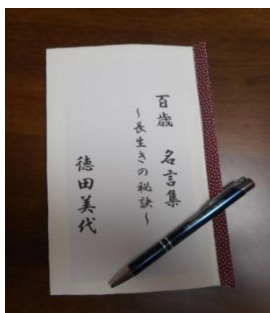 百歳 名言集
~長生きの秘訣~
徳田美代